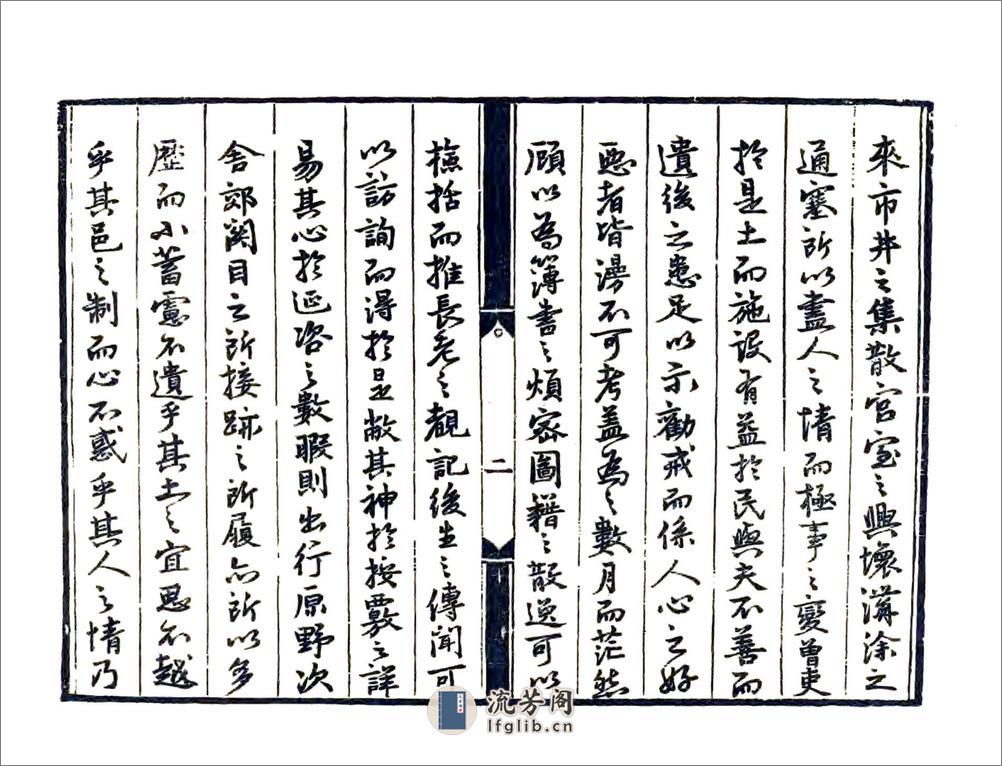 來市井之集散宮室之興壞溝涂之
通塞所以盡人之情而極事之變曾吏
於是土而施設有益於民與夫不善而
遺後之患足以示勸戒而係人心之好
惡者皆漫不可考蓋為之數月而茫然
顧以為簿書之煩密圖籍之散逸可以
檢括而推長老之覩記後生之傳聞可
以訪詢而得於是敝其神於按覈之詳
易其心於延咨之數暇則出行原野次
舍郊關目之所接跡之所履亦所以多
歷而不蓄慮不遺乎其土之宜思不越
乎其邑之制而心不惑乎其人之情乃
二
流芳阁
lfglib.cn